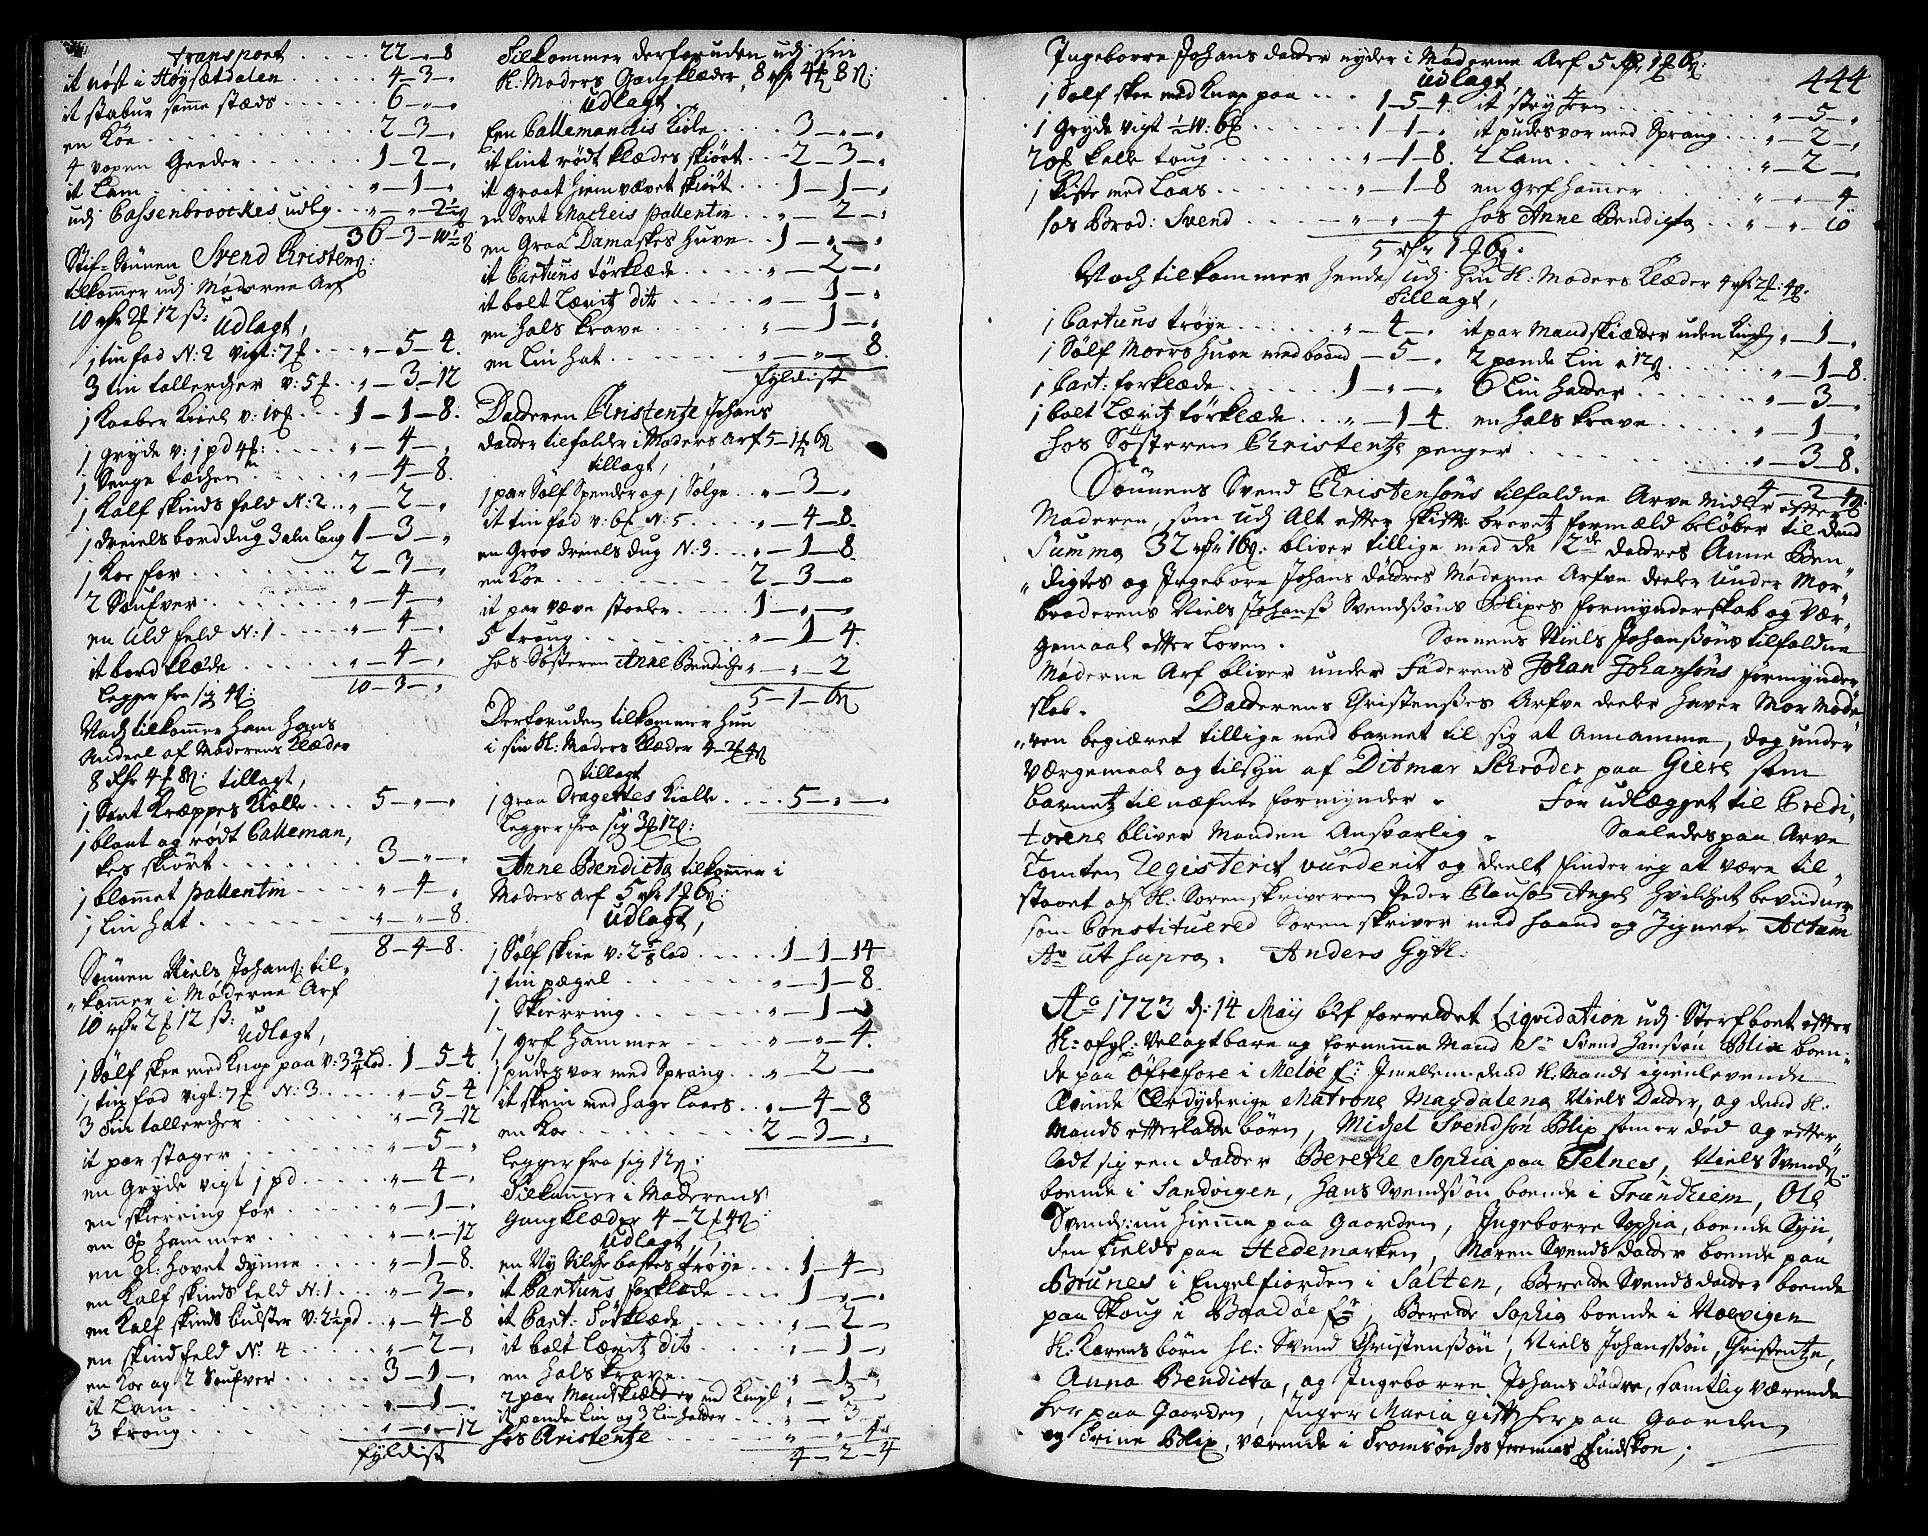 transport . . . . . 22 — „ 8
it nøst i Høysætdalen . . . . 4 — 3 — „
it stabur samme stæds . . . . 6 — „ — „
en Koe . . . . 2 — 3 — „
4 vopen Geeder . . . . 1 — 2 — „
it Lam . . . . „ — 1 — „
udj Cassenbroockes udlg . . „ — „ — 2½ ß
36 — 3 — 10½ ß
Stif-Sønnen Svend Christens:
tilkommer udj Møderne Arf
10 rdr 2 12 ß:
Udlagt,
1 tin fad N: 2 vigt: 7 . . . „ — 5 — 4.
3 tin tallercher v: 5 . . „ — 3 — 12
1 Kaaber Kieel v: 10 . . . 1 — 1 — 8.
1 Gryde v: 1 pd 4 : . . . „ — 4 — „
1 Senge tæchen . . . . „ — 4 — 8.
1 Kalf skinds feld N: 2 . . „ — 2 — „
1 dreiels bord dug 3 aln lang 1 — 3 — „
1 Koe for . . . . . 2 — 3 — „
2 Saufver . . . . . „ — 4 — „
en Uld feld N: 1 . . . . . „ — 4 — „
it bord klæde . . . . . „ — 4 — „
Legger fra sig 4 ß: 10 — 3 — „
Noch tilkommer ham hans
Andeel af Moderens Klæder
8 Rdr 4 8 ß: tillagt,
1 Sort Kræppes Kiolle . . . 5 — „ — „
1 blaat og rødt Calleman,
kes skiørt . . . . . . 3 — „ — „
1 blommet pallentin . . . . „ — 4 — „
1 Lin hat . . . . . „ — „ — 8.
8 — 4 — 8.
Sønnen Niels Johans: til-
„kommer i Møderne Arf
10 rdr 2 12 ß:
Udlagt,
1 Sølf skee med Knap paa v: 3¾ lod . 1 — 5 — 4
1 tin fad vigt: 7 N: 3 . . . . „ — 5 — 4
3 tin tallercher . . . . „ — 3 — 12
it par stager . . . . . „ — 5 — „
en Gryde vigt 1 pd . . . . „ — 4 — „
en skierring for . . . . „ — 1 — „
en Øx hammer . . . . . „ — „ — 12
en gl: hovet dynne . . . . „ — 1 — 8.
en Kalf skinds feld N: 1 . . . „ — 3 — „
en Kalf skinds bulster v: 2½ pd . . „ — 4 — 8
en skindfeld No: 4 . . . . „ — 2 — „
en Koe og 2 Saufver . . . . 3 — 1 — „
it Lam . . . . . „ — 1 — „
3 troug . . . . . „ — „ — 12
fyldist
Tilkommer der foruden udj sin
Sl: Moders Gangklæder, 8 rdr 4 8 ß:
Udlagt
Een Callemanchis Kiole . . . . 3 — „ — „
it fint rødt klædes skiørt . . . 2 — 3 — „
it graat hiemvævet skiørt . . . 1 — 1 — „
en Sort Macheis pallentin . . „ — 2 — „
en Graa Damaskes huve . . . 1 — „ — „
it Cartuns tørklæde . . . . . „ — 2 — „
it bolt Lærritz dito . . . . „ — 1 — „
en hals krave . . . . . „ — 1 — „
en Lin hat . . . . . . „ — „ — 8.
fyldist
Datteren Christentze Johans
datter tilfalder i Moders Arf 5 — 1 6 ß
tillagt,
1 par Sølf Spender og 1 Sølge . . „ — 3 — „
it tin fad v: 6 N: 5 . . . . „ — 4 — 8.
en Grov dreiels dug N: 3 . . . „ — 1 — 8.
en Koe . . . . . . 2 — 3 — „
it par væve stoeler . . . . 1 — „ — „
5 troug . . . . . . „ — 1 — 4.
hos Søsteren Anne Bendicte „ — „ — 2
5 — 1 — 6 ß
Derforuden tilkommer hun
i sin Sl: Moders Klæder 4 — 2 4 ß
tillagt
1 graa Dragettes Kiolle . . . . 5 — „ — „
Legger fra sig 3 12 ß:
Anne Bendicta tilkommer i
Moders Arf 5 rdr 1 6 ß:
Udlagt,
1 Sølf skiee v: 2⅝ lod . . . . . 1 — 1 — 14
1 tin pægel . . . . . . „ — 1 — 8.
1 Skierring . . . . . „ — 1 — „
1 grf hammer . . . . . „ — „ — 4.
1 pudesvor med Sprang . . . „ — 2 — „
it skrin med hage Laas . . . „ — 4 — 8
en Koe . . . . . . 2 — 3 — „
Legger fra sig 12 ß:
Tilkommer i Moderens
Gangklæder 4 — 2 4 ß
Udlagt,
en Ny Silche bastes trøye . . . 1 — 4 — „
it Cartuns forklæde . . . . 1 — „ — „
it Cart: Tørklæde . . . . . „ — 2 — „
it bolt Lærritz dito . . . . . „ — 1 — „
en hals krave . . . . . „ — 1 — „
2 par Mandskiælder ud Kingl „ — 3 — „
it pande Lin og 3 Lin halder . . . . „ — 3 — „
hos Christentze . . . . . „ — „ — 4
4 — 2 — 4
444
Ingeborre Johans datter nyder i Møderne Arf 5 Rdr 1 6 ß:
Udlagt,
1 Sølf skee med Knap paa . . . 1 — 5 — 4.
1 Gryde vigt ½ W: 6 . . . . . 1 — 1 — „
2 kalle toug . . . . . . „ — 1 — 8.
1 Kiste med Laas . . . . . „ — 1 — 8
hos Brod: Svend . . . . . „ — „ — 4
it stry Jern . . . . . . „ — 5 — „
it pudesvor med Sprang . . . „ — 2 — „
2 Lam . . . . . . „ — 2 — „
en grf hammer . . . . . „ — „ — 4
hos Anne Bendicta . . „ — „ — 10
5 rdr 1 6 ß.
Noch tilkommer hende udj sin Sl: Moders Klæder 4 rdr 2 : 4 ß:
Tillagt,
1 Cartuns trøye . . . . . „ — 4 — „
1 Sølf Moors huve med baand — 5 — „
1 Cart: forklæde . . . . . 1 — „ — „
1 bolt Lærritz tørklæde . . . „ — 1 4.
it par Mandskiælder uden Kingl „ — 1 — „
2 pande Lin a 12 ß . . . . . „ — 1 — 8.
6 Lin halder . . . . . „ — 3 — „
en hals krave . . . . . „ — 1 — „
hos Søsteren Christentze penger . . . . . „ — 3 — 8.
4 — 2 — 4 ß:
Sønnens Svend Christensøns tilfaldne Arve Midler efter
Moderen, som udj Alt efter skifte brevetz formæld beløber til dend
Summa 32 rdr 16 ß: bliver tillige med de 2de døtres Anne Ben-
„digtes og Ingebore Johans døtres Møderne Arfve deele under Mor-
broderens Niels Johanß Svendßøns Blixes formynderskab og vær-
gemaal efter Loven. Sønnens Niels Johanßøns tilfaldne
Møderne Arf bliver under Faderens Johan Johansøns formynder
skab. Datterens Christenßes Arfve deele haver Mor Mode
„ren begiæret tillige med barnet til sig at annamme, dog under
værgemaal og tilsyn af Ditmar Schrøder paa Giere som
barnetz til næfnte formynder. For udlægget til Credi-
torene bliver Manden Ansvarlig. Saaledes paa Arve
Tomten Registerit vurderit og deelt finder ieg at være til,
staaet af Sl: Sorenskriveren Peder Clausøn Angel hvilchet bevidner
som Constituered Sorenskriver med haand og Zignete Actum
Ao ut supra. Anders Gyth:
Ao 1723 d: 14 Maij blef forrettet Liqvidation udj Sterfboet efter
Sl: ofgl: Velagtbare og fornemme Mand Sr Svend Hanßøn Blix boen-
de paa Øfrefore i Meløe F: Imellem dend Sl: Mands igienlevende
Qvinde Ærdyderige Matrone Magdalena Niels Datter, og dend Sl:
Mands efterlatte børn, Michel Svendsøn Blix som er død og efter
ladt sig een datter Berethe Sophia paa Telnes, Niels Svendß:
boende i Sandvigen, Hans Svendsøn boende i Trundhiem, Ole
Svends: nu hiemme paa Gaarden, Ingeborre Sophia, boende Syn,
den fields paa Hedemarken, Maren Svends datter boende paa
Brunes i Engelfiorden i Salten, Berethe Svends datter boende
paa Skoug i Baadøe F:, Berethe Sophia boende i Noevigen
Sl: Karens børn Sl: Svend Christenßøn, Niels Johanßøn, Christentze,
Anna Bendicta, og Ingeborre Johans døttre, samtlig værende
her paa Gaarden, Inger Maria gift her paa Gaarden
og Trine Blix, værende i Tromsøe hos Jeremias Findskoe;